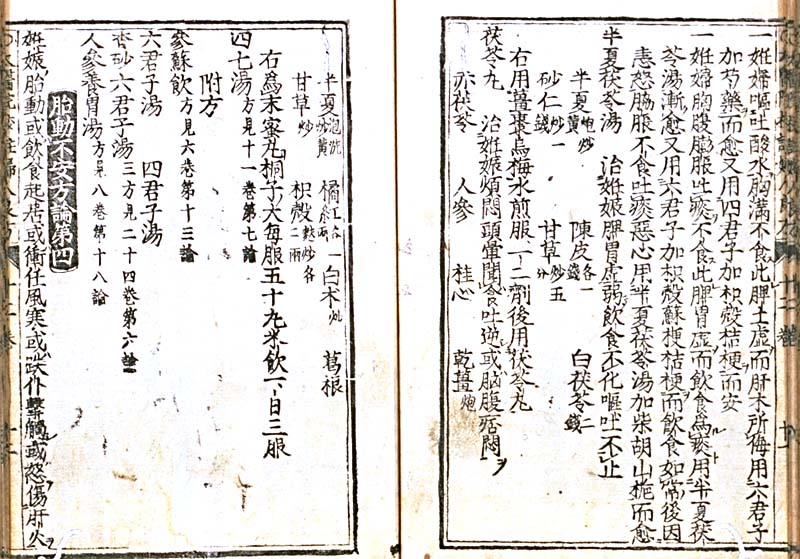 一妊婦嘔吐酸水胸滿不食此脾土虛而肝木所侮用六君子
加芍藥而愈又用四君子加枳殼桔梗而安
一妊婦胸腹膨脹吐痰不食此脾胃虛而飲食為痰用半夏茯
苓湯漸愈又用六君子加枳殼蘇梗桔梗而飲食如常後因
恚怒脇脹不食吐痰惡心用半夏茯苓湯加柴胡山梔而愈
半夏茯苓湯 治妊娠脾胃虛弱飲食不化嘔吐不止
半夏 炮炒黃 陳皮 各一錢 白茯苓 二錢
砂仁 炒一錢 甘草 炒五分
右用薑棗烏梅水煎服一二劑後用茯苓丸
茯苓丸 治妊娠煩悶頭暈聞食吐逆或胸腹痞悶
赤茯苓 人參 桂心 乾薑 炮
半夏 泡洗炒黃 橘紅 各一兩 白朮 炒 葛根
甘草 炒 枳殼 麩炒各二兩
右為末蜜丸桐子大每服五十丸米飲下日三服
四七湯 方見十一卷第七論
附方
參蘇飲 方見六卷第十三論
六君子湯 四君子湯
香砂六君子湯 三方見二十四卷第六論
人參養胃湯 方見八卷第十八論
胎動不安方論第四
妊娠胎動或飲食起居或衝任風寒或跌仆擊觸或怒傷肝火